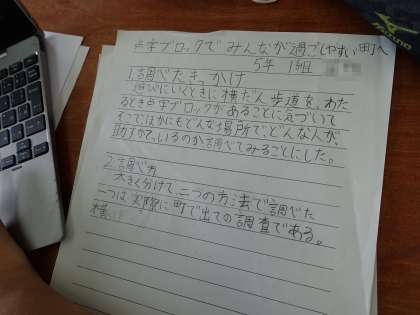 点字ブロックでみんなが過ごしやすい町へ
5年1組
1.調べたきっかけ
遊びにいくときに横だん歩道を、わた
るとき点字ブロックがあることに気づいて
そこでほかにもどんな場所で、どんな人が、
助すかっているのか調べてみることにした。
2.調べ方
大きく分けて、二つの方法で調べた
一つは実際に町で出ての調査である。
MIZUNO